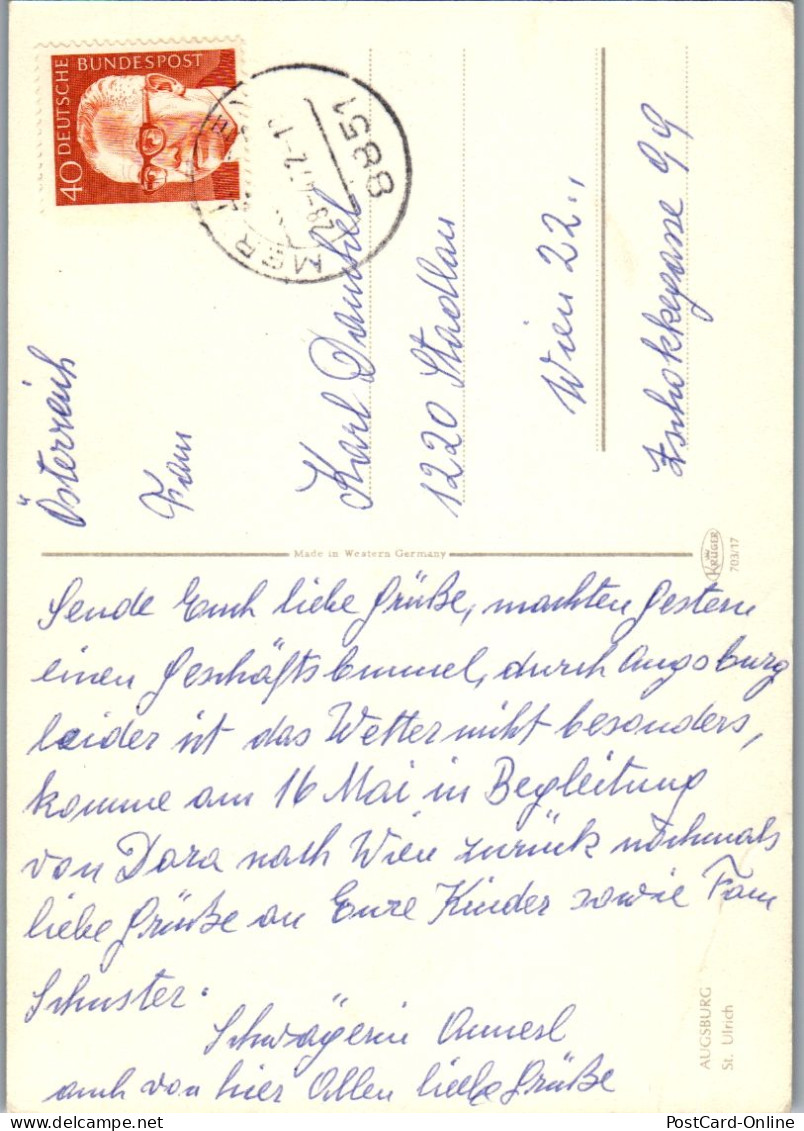 DEUTSCHE BUNDESPOST
40
8851
28.-4.72-1
MER
Österreich
Fam
Karl Dauschel
1220 Stadlau
Wien 22.,
Zschokkegasse 99
Made in Western Germany
KRÜGER
703/17
Sende Euch liebe Grüße, machten Gestern
einen Geschäftsbummel, durch Augsburg
leider ist das Wetter nicht besonders,
komme am 16 Mai in Begleitung
von Dora nach Wien zurück nochmals
liebe Grüße an Eure Kinder sowie Fam
Schuster.
Schwägerin Annerl
auch von hier Allen liebe Grüße
AUGSBURG
St. Ulrich
PostCard-Online